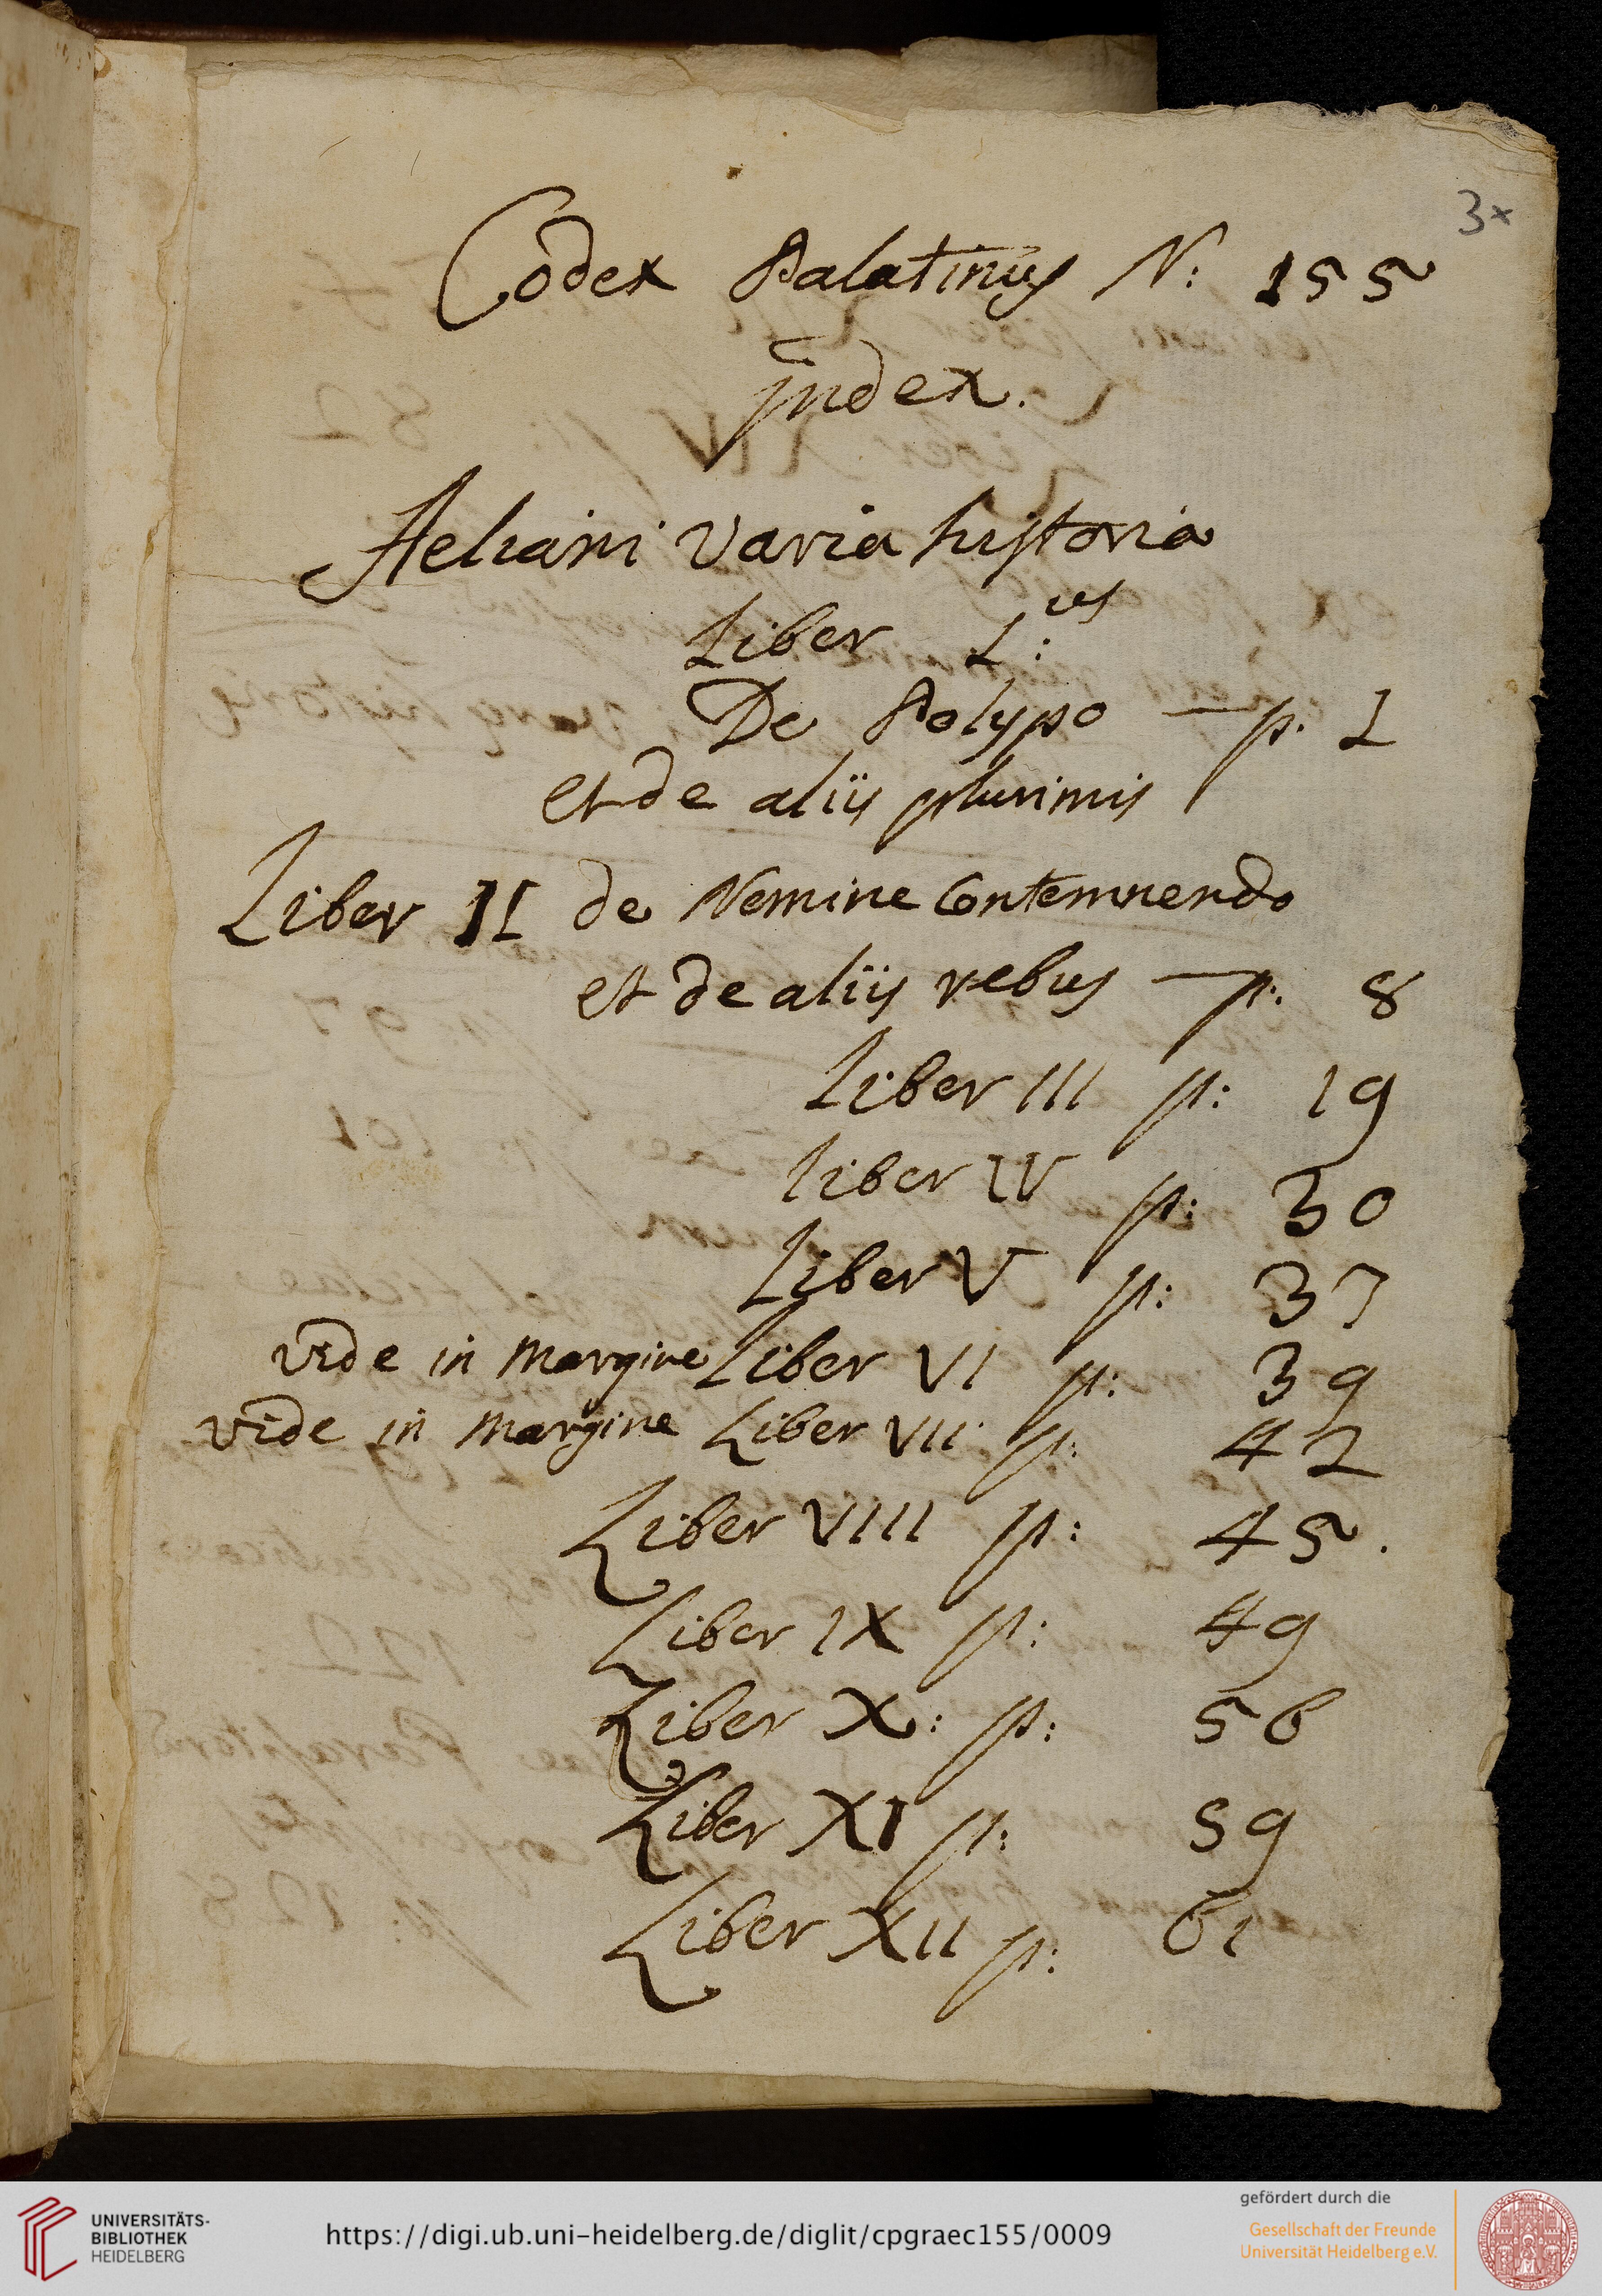 3x
Codex Palatinus N: 155
jndex.
Aeliani varia historia
Liber I:us
De Polypo — p. 1
et de aliis plurimis
Liber II de Nemine Contemnendo
et de aliis rebus — p. 8
Liber III p: 19
liber IV p: 30
Liber V p: 37
vide in margine Liber VI p: 39
vide in margine Liber VII p: 42
Liber VIII p: 45.
Liber IX p: 49
Liber X: p: 56
Liber XI p: 59
Liber XII p: 61
UNIVERSITÄTS-
BIBLIOTHEK
HEIDELBERG
https://digi.ub.uni-heidelberg.de/diglit/cpgraec155/0009
gefördert durch die
Gesellschaft der Freunde
Universität Heidelberg e.V.